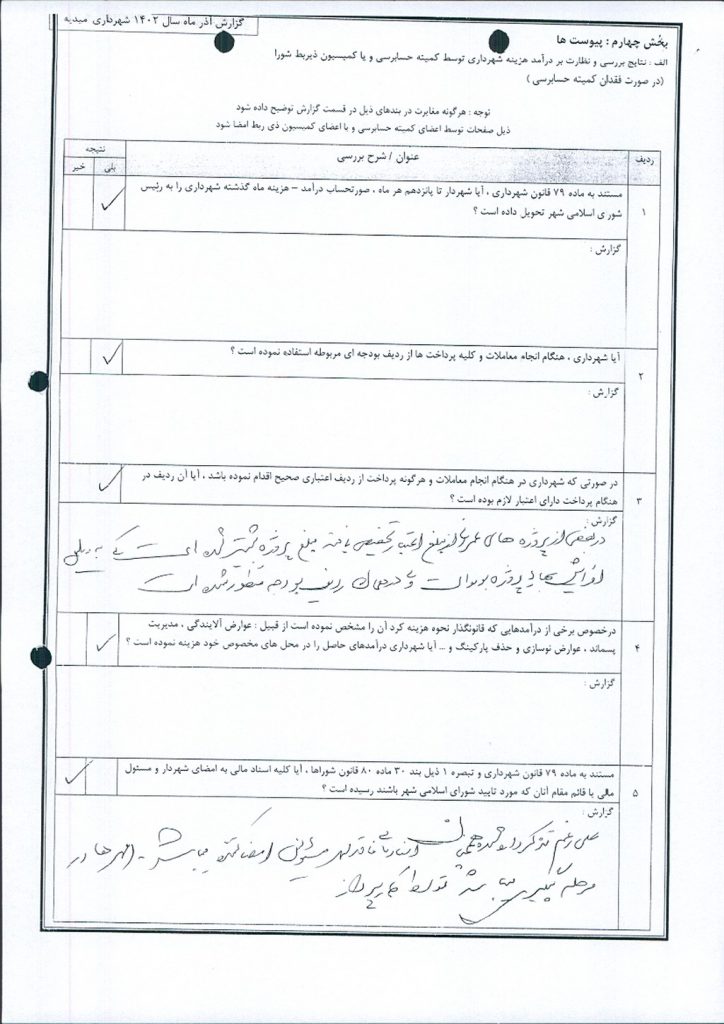 گزارش آذر ماه سال ۱۴۰۲ شهرداری میدیه
بخش چهارم : پیوست ها
الف : نتایج بررسی و نظارت بر درآمد هزینه شهرداری توسط کمیته حسابرسی و یا کمیسیون ذیربط شورا
(در صورت فقدان کمیته حسابرسی )
توجه : هرگونه مغایرت در بندهای ذیل در قسمت گزارش توضیح داده شود
ذیل صفحات توسط اعضای کمیته حسابرسی و یا اعضای کمیسیون ذی ربط امضا شود
ردیف
عنوان / شرح بررسی
نتیجه
بلی
خیر
۱
مستند به ماده ۷۹ قانون شهرداری ، آیا شهردار تا پانزدهم هر ماه ، صورتحساب درآمد – هزینه ماه گذشته شهرداری را به رئیس
شور ی اسلامی شهر تحویل داده است ؟
گزارش :
۲
آیا شهرداری ، هنگام انجام معاملات و کلیه پرداخت ها از ردیف بودجه ای مربوطه استفاده نموده است ؟
گزارش :
۳
در صورتی که شهرداری در هنگام انجام معاملات و هرگونه پرداخت از ردیف اعتباری صحیح اقدام نموده باشد ، آیا آن ردیف در
هنگام پرداخت دارای اعتبار لازم بوده است ؟
گزارش :
در بعضی از پروژه های عمرانی از مبلغ اعتبار تخصیص یافته مبلغ پروژه بیشتر شده است که به دلیل
افزایش بهای پروژه بوده است و در ردیف بودجه منظور شده است
۴
درخصوص برخی از درآمدهایی که قانونگذار نحوه هزینه کرد آن را مشخص نموده است از قبیل : عوارض آلایندگی ، مدیریت
پسماند ، عوارض نوسازی و حذف پارکینگ و ... آیا شهرداری درآمدهای حاصل را در محل های مخصوص خود هزینه نموده است ؟
گزارش :
۵
مستند به ماده ۷۹ قانون شهرداری و تبصره ۱ ذیل بند ۳۰ ماده ۸۰ قانون شوراها ، آیا کلیه اسناد مالی به امضای شهردار و مسئول
مالی یا قائم مقام آنان که مورد تایید شورای اسلامی شهر باشند رسیده است ؟
گزارش :
علی رغم تذکر داده شده اسناد مالی فاقد مهر مسئولین امضا کننده می باشد - مهرها در
مرحله پیگیری می باشد توسط کارپرداز